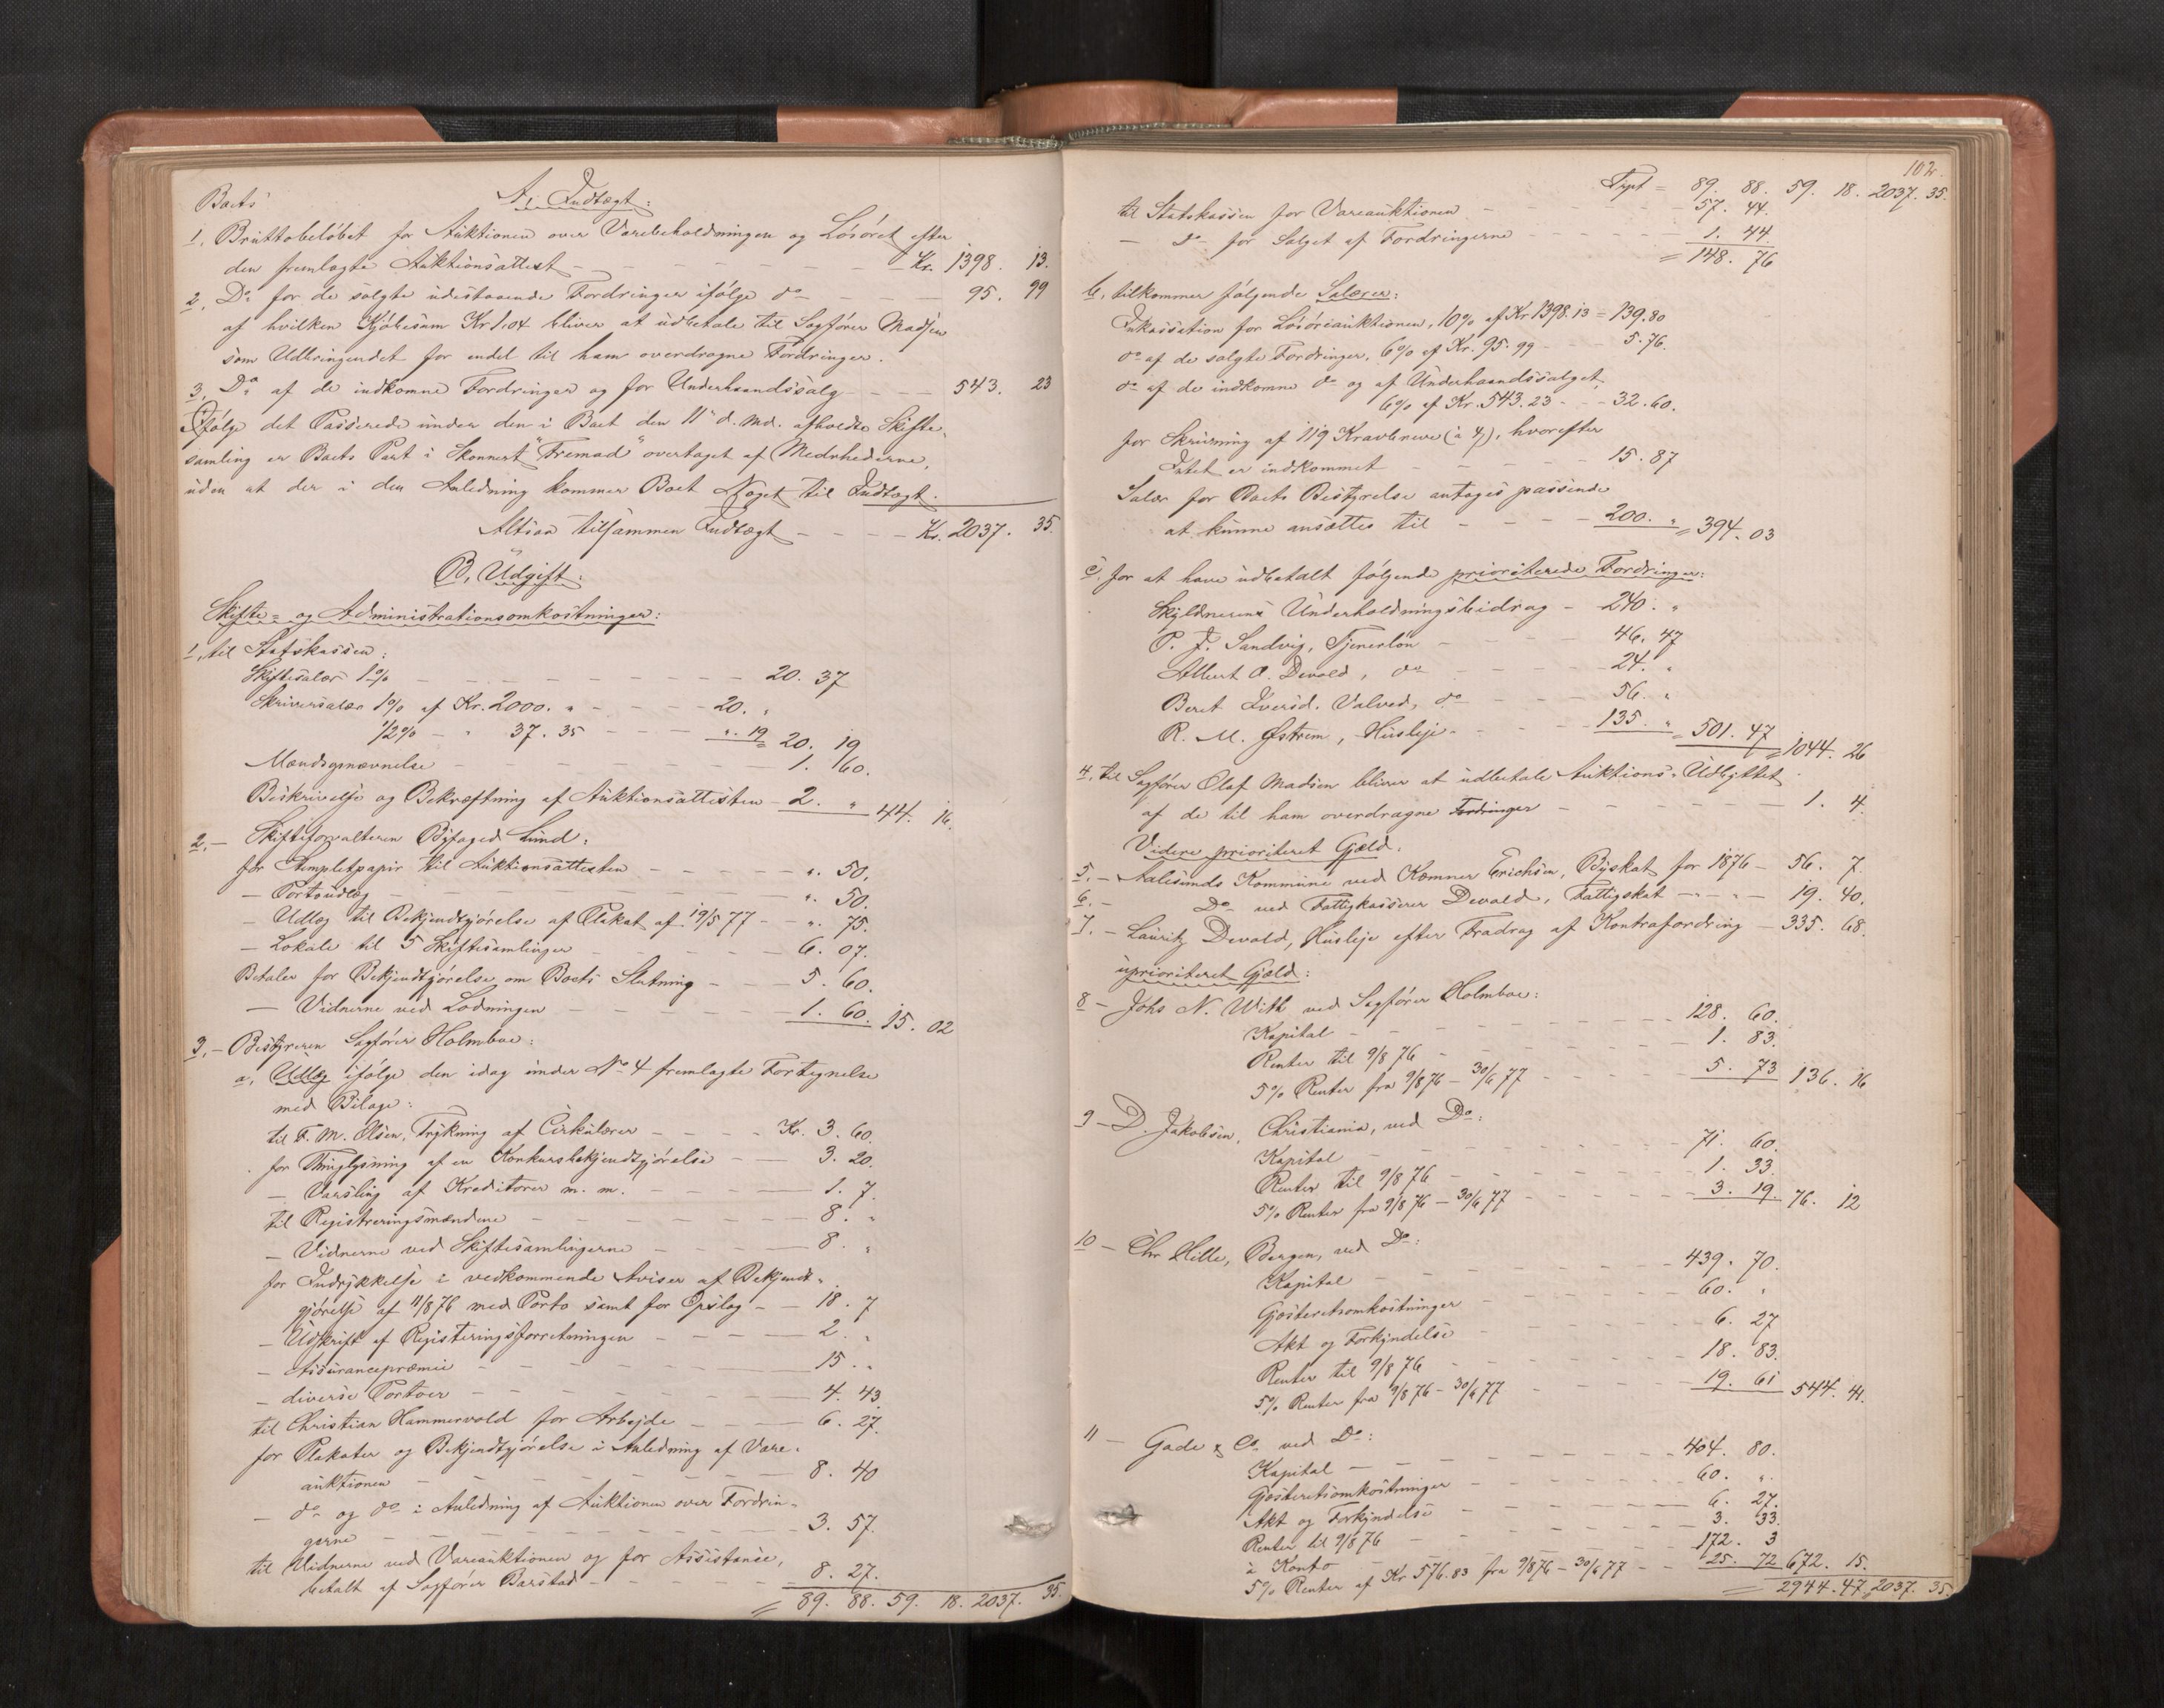 Boets
A, Indtægt:
1, Bruttobeløbet for Auktionen over Varebeholdningen og Løsøret efter
den fremlagte Auktionsattest - - - Kr. 1398. 13.
2, Do for de solgte udestaaende Fordringer ifølge do - - - 95. 99
af hvilken Kjøbesum Kr 1.04 bliver at udbetale til Sagfører Madsen
som Udbringendet for endel til ham overdragne Fordringer.
3, Do af de indkomne Fordringer og for Underhaandssalg - - - 543. 23
Ifølge det Passerede under den i Boet den 11te d. Md. afholdte Skifte-
samling er Boets Part i Skonnert "Fremad" overtaget af Medrhederne,
uden at der i den Anledning kommer Boet Noget til Indtægt.
Altsaa tilsammen Indtægt - - - Kr. 2037. 35.
B, Udgift:
Skifte- og Administrationsomkostninger:
1, til Statskassen:
Skiftesalær 1% - - - 20. 37
Skriversalær 1% af Kr. 2000. " - - - 20. "
1/2% - " 37. 35 - - - ". 19 = 20. 19
Mændsopnævnelse - - - 1. 60.
Beskrivelse og Bekræftning af Auktionsattesten - 2. " 44. 16.
2, - Skifteforvalteren Byfoged Lund:
for Stempletpapir til Auktionsattesten - - - ". 50.
- Portoudlæg - - - ". 50.
- Udlæg til Bekjendtgjørelse af Plakat af 19/5 77 - - ". 75.
- Lokale til 5 Skiftesamlinger - - - 6. 07.
Betaler for Bekjendtgjørelse om Boets Slutning - - - 5. 60.
- Vidnerne ved Lodningen - - - 1. 60. 15. 02
3, - Bestyreren Sagfører Holmboe:
a, Udlæg ifølge den idag under No 4 fremlagte Fortegnelse
med Bilage:
til F. M. Olsen, Trykning af Cirkulærer - - - Kr. 3. 60.
for Thinglysning af en Konkursbekjendtgjørelse - - 3. 20.
- Varsling af Kreditorer m. m. - - - 1. 7.
til Registreringsmændene - - - 8. "
- Vidnerne ved Skiftesamlingerne - - - 8. "
for Indrykkelse i vedkommende Aviser af Bekjendt-
gjørelse af 11/8 76 med Porto samt for Opslag - - 18. 7
- Udskrift af Registeringsforretningen - - - 2. "
- Assurancepræmie - - - 15. "
- diverse Portoer - - - 4. 43.
til Christian Hammervold for Arbejde - - - 6. 27.
for Plakater og Bekjendtgjørelse i Anledning af Vare-
auktionen - - - 8. 40
- do og do i Anledning af Auktionen over Fordrin-
gerne - - - 3. 57.
til Vidnerne ved Vareauktionen og for Assistance,
betalt af Sagfører Barstad - - - 8. 27.
= 89. 88. 59. 18. 2037. 35.
102.
Trpt = 89. 88. 59. 18. 2037. 35.
til Statskassen for Vareauktionen - - - 57. 44.
- do for Salget af Fordringerne - - - 1. 44
= 148. 76
b, tilkommer følgende Salærer:
Inkassation for Løsøreauktionen, 10% af Kr 1398.13 = 139.80
do af de solgte Fordringer, 6% af Kr. 95.99 - - - 5.76.
do af de indkomne do og af Underhaandssalget,
6% af Kr. 543.23 - - - 32.60.
for Skrivning af 119 Kravbreve (à 4/), hvorefter
Intet er indkommet - - - 15. 87
Salær for Boets Bestyrelse antages passende
at kunne ansættes til - - - 200. " = 394. 03
c, for at have udbetalt følgende prioriterede Fordringer:
Skyldnerens Underholdningsbidrag - 240. "
P. J. Sandvig, Tjenerløn - - - 46. 47
Albert A. Devold, do - - - 24. "
Beret Iversd. Valved, do - - - 56. "
R. M. Østrem, Husleje - - - 135. " = 501. 47 = 1044. 26
4, til Sagfører Olaf Madsen bliver at udbetale Auktions-Udbyttet
af de til ham overdragne Fordringer - - - 1. 4.
Videre prioriteret Gjæld:
5, - Aalesunds Kommune ved Kæmner Erichsen, Byskat for 1876 - 56. 7.
6, - Do ved Fattigkasserer Devold, Fattigskat - " - 19. 40.
7, - Lauritz Devold, Husleje efter Fradrag af Kontrafordring - 335. 68.
uprioriteret Gjæld:
8 - Johs N. With ved Sagfører Holmboe:
Kapital - - - 128. 60.
Renter til 9/8 76 - - - 1. 83.
5% Renter fra 9/8 76 - 30/6 77 - - - 5. 73 136. 16
9 - D. Jakobsen, Christiania, ved Do:
Kapital - - - 71. 60.
Renter til 9/8 76 - - - 1. 33.
5% Renter fra 9/8 76 - 30/6 77 - - - 3. 19. 76. 12
10 - Chr Hille, Bergen, ved Do:
Kapital - - - 439. 70.
Gjesteretsomkostninger - - - 60. "
Akt og Forkyndelse - - - 6. 27
Renter til 9/8 76 - - - 18. 83.
5% Renter fra 9/8 76 - 30/6 77 - - - 19. 61 544. 41.
11 - Gade & Co ved Do:
Kapital - - - 404. 80.
Gjesteretsomkostninger - - - 60. "
Akt og Forkyndelse - - - 6. 27.
Renter til 9/8 76 - - - 3. 33.
à Konto - - - 172. 3
5% Renter af Kr 576.83 fra 9/8 76 - 30/6 77 - - 25. 72 672. 15.
= 2944. 47. 2037. 35.